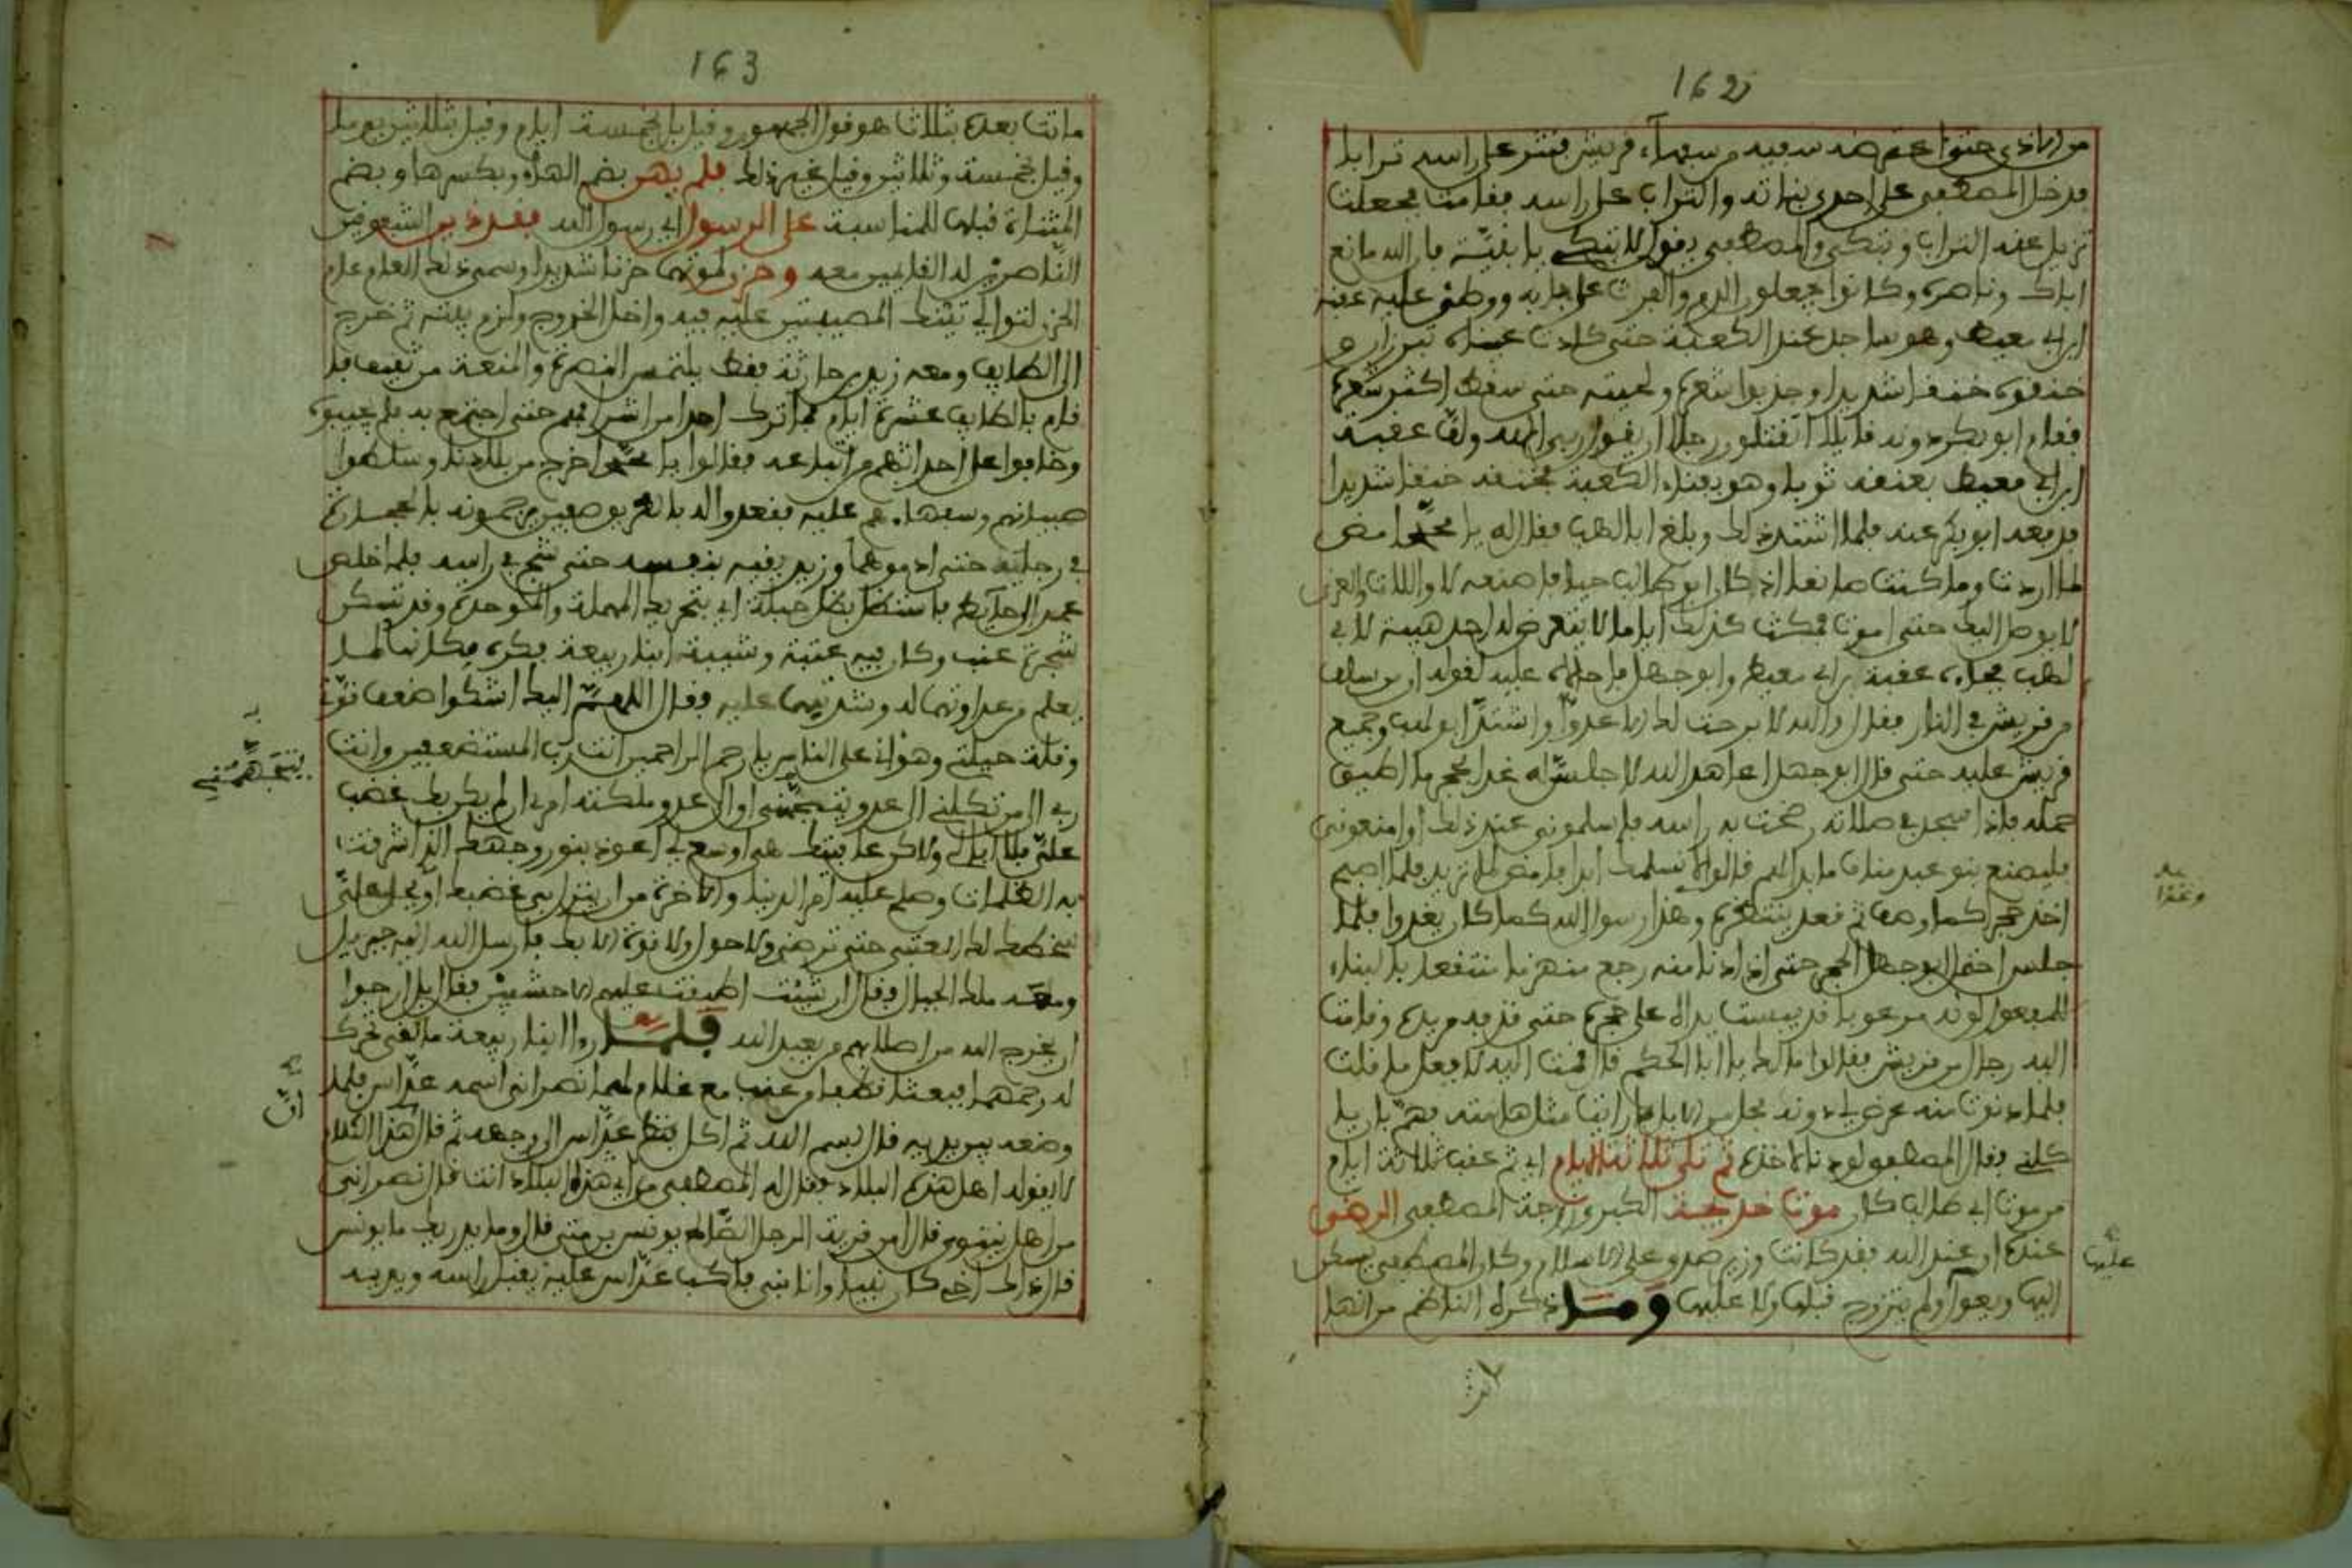 162
من الاذى حتى اعترضه سفيه من سفهاء قريش فنثر على راسه ترابا
فدخل المصطفى على احدى بناته والتراب على راسه فقامت فجعلت
تزيل عنه التراب وتبكي والمصطفى يقول لا تبكي يا بنية فان الله مانع
اباك وناصره وكانوا يجعلون الدم والفرث على بابه ووطئ عليه عقبة
ابن ابي معيط وهو ساجد عند الكعبة حتى كادت عيناه تبرزان و
خنقوه خنقا شديدا وجذبوا شعره ولحيته حتى سقط اكثر شعره
فقام ابو بكر دونه قايلا اتقتلون رجلا ان يقول ربي الله ولف عقبة
ابن ابي معيط بعنقه ثوبا وهو بفناء الكعبة فخنقه خنقا شديدا
فدفعه ابو بكر عنه فلما اشتد ذلك وبلغ ابا لهب فقال له يا محمد امض
لما اردت وما كنت صانعا اذ كان ابو طالب حيا فاصنعه لا واللات والعزى
لا يوصل اليك حتى اموت فمكث كذلك اياما لا يتعرض له احد هيبة لابي
لهب فجاء عقبة بن ابي معيط وابو جهل فاحالاه عليه لقوله ان من سلف
من قريش في النار فقال والله لا برحت لك الا عدوا واشتد ابو لهب وجميع
قريش عليه حتى قال ابو جهل اعاهد الله لاجلس له غدا بحجر ما اطيق
حمله فاذا سجد في صلاته رضخت به راسه فاسلموني عند ذلك او امنعوني
فليصنع بنو عبد مناف ما بدا لهم قالوا لا نسلمك ابدا فامض لما تريد فلما اصبح
اخذ حجرا كما وصف ثم قعد ينتظره وغدا رسول الله كما كان يغدوا فلما
وغدا
جلس احتمل ابو جهل الحجر حتى اذا دنا منه رجع منهزما منتقعا بالبناء
للمفعول لونه مرعوبا قد يبست يداه على حجره حتى قذفه من يده وقامت
اليه رجال من قريش فقالوا مالك يا ابا الحكم قال قمت اليه لافعل ما قلت
فلما دنوت منه عرض لي دونه فحل من الابل ما رايت مثل هامته فهم بان يا
كلني فقال المصطفى لو دنا لاخذه ثم تلى ثلاثة ايام اي ثم عقب ثلاثة ايام
من موت ابي طالب كان موت خديجة الكبرى زوجة المصطفى الرضى
عنده او عند الله فقد كانت وزير صدق على الاسلام وكان المصطفى يسكن
عليها
اليها ولم يتزوج قبلها ولا عليها وما ذكره الناظم من انها
163
ماتت بعده بثلاث هو قول الجمهور وقيل بل بخمسة ايام وقيل بثلاثين يوما
وقيل بخمسة وثلاثين وقيل غير ذلك فلم يهن بضم الهاء وبكسرها وبضم
المثناة قبلها للمناسبة على الرسول اي رسول الله فقد ذين الشفوقين
الناصرين له القايمين معه وحزن لموتهما حزنا شديدا وسمى ذلك العام عام
الحزن لتوالي تينك المصيبتين عليه فيه واقل الخروج ولزم بيته ثم خرج
الى الطايف ومعه زيد بن حارثة فقط يلتمس النصرة والمنعة من ثقيف فا
قام بالطايف عشرة ايام فما ترك احدا من اشرافهم حتى اجتمع به فلم يجيبوه
وخافوا على احداثهم من اتباعه فقالوا يا محمد اخرج من بلادنا وسلطوا
صبيانهم وسفهاءهم عليه فقعدوا له بالطريق صفين يرجمونه بالحجارة
في رجليه حتى ادموهما وزيد يقيه بنفسه حتى شج في راسه فلما خلص
عمد الى حائط فاستظل بظل حبلة اي بتحريك المهملة والموحدة وقد تسكن
شجرة عنب وكان فيه عتبة وشيبة ابنا ربيعة فكره مكانهما لما
يعلم من عداوتهما له وشدتهما عليه فقال اللهم اليك اشكوا ضعف قوتي
وقلة حيلتي وهواني على الناس يا رحم الراحمين انت رب المستضعفين وانت
يتجهمني
ربي الى من تكلني الى عدو يتجهمني او الى عدو ملكته امري ان لم يكن بك غضب
علي فلا ابالي ولاكن عافيتك هي اوسع لي اعوذ بنور وجهك الذي اشرقت
به الظلمات وصلح عليه امر الدنيا والاخرة من ان ينزل بي غضبك او يحل علي
سخطك لك العتبى حتى ترضى ولا حول ولا قوة الا بك فارسل الله اليه جبريل
ومعه ملك الجبال فقال ان شئت اطبقت عليهم الاخشبين فقال بل ارجوا
ان يخرج الله من اصلابهم من يعبد الله فلما راى ابنا ربيعة ما لقي تحرك
له رحمهما فبعثا قطفا من عنب مع غلام لهما نصراني اسمه عداس فلما
وضعه بين يديه قال بسم الله ثم اكل فنظر عداس الى وجهه ثم قال هذا الكلام
ان
لا يقوله اهل هذه البلاد فقال له المصطفى من اي هذه البلاد انت قال نصراني
من اهل نينوى قال امن قرية الرجل الصالح يونس بن متى قال وما يدريك ما يونس
قال ذلك اخي كان نبيا وانا نبي فاكب عداس عليه يقبل راسه ويديه